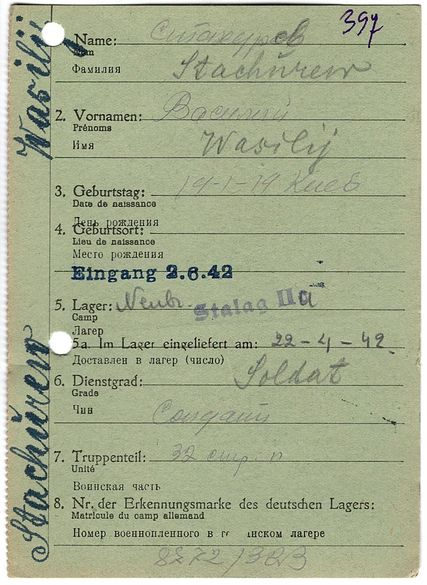 397
Name: Стахурев
Nom
Фамилия Stachŭrew
2. Vornamen: Василий
Prénoms
Имя Wasilij
3. Geburtstag: 19-1-19 Киев
Date de naissance
День рождения
4. Geburtsort:
Lieu de naissance
Место рождения
Eingang 2.6.42
5. Lager: Neubr. Stalag II a
Camp
Лагер
5a. Im Lager eingeliefert am: 22-4-42.
Доставлен в лагер (число)
6. Dienstgrad: Soldat
Grade
Чин Солдат
7. Truppenteil: 32
Unité
Воинская часть
8. Nr. der Erkennungsmarke des deutschen Lagers:
Matricule du camp allemand
Номер военнопленного в лагере
8272/
Stachŭrew Wasilij